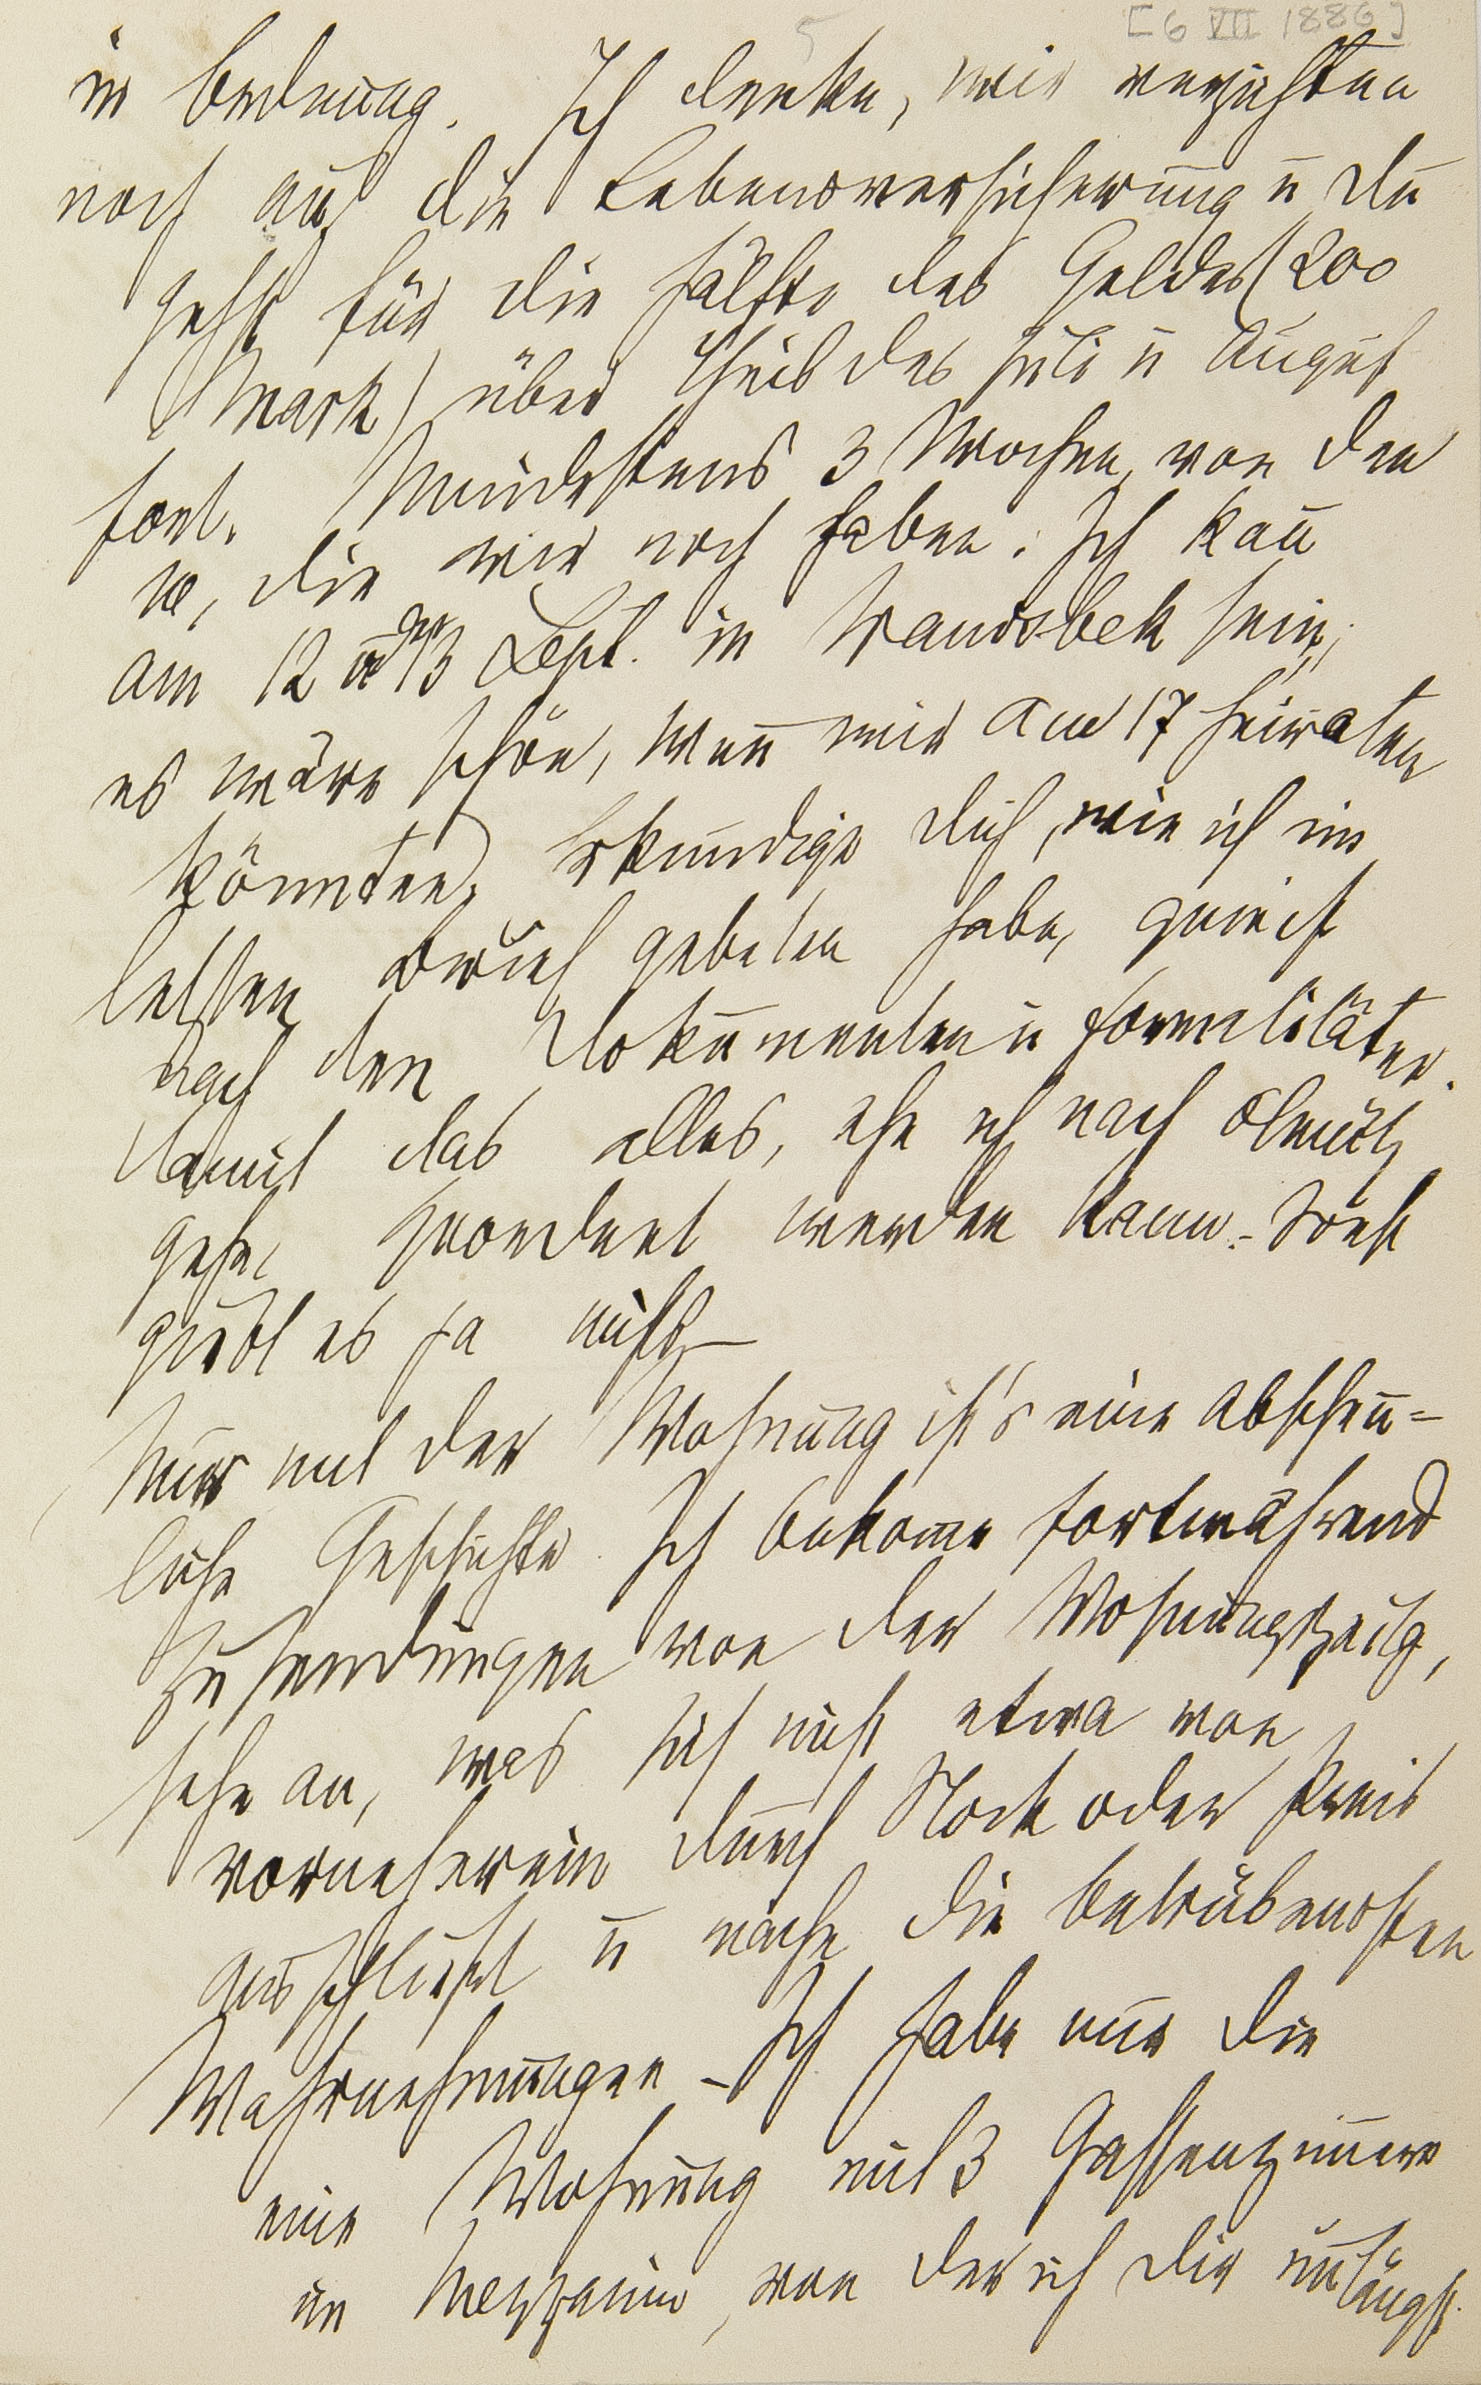 [6 VII 1886]
5
in Ordnung. Ich denke, wir verzichten
noch auf die Lebensversicherung u Du
gehst für die Hälfte des Geldes (200
Mark) über Theil des Juli u August
fort. Mindestens 3 Wochen, von den
10, die wir noch haben. Ich kañ
am 12 oder 13 Sept. in Wandsbek sein;
es wäre schön, weñ wir am 17 heiraten
könnten. Erkundige Dich, wie ich im
letzten Brief gebeten habe, gleich
nach den Dokumenten u Formalitäten.
Damit das alles, ehe ich nach Olmütz
gehe, geordnet werden kann. – Sonst
giebt es ja nichts –
Nur mit der Wohnung ist's eine abscheu=
liche Geschichte. Ich bekome fortwährend
Zusendungen von der Wohnungszeitg,
sehe an, was sich nicht etwa von
vorneherein durch Stock oder Preis
ausschließt u mache die betrübendsten
Wahrnehmungen – Ich habe nur die
eine Wohnung mit 3 Gassenzimern
im Mezzanin, von der ich Dir unlängst